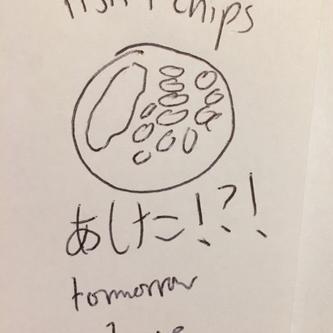 fish + chips
あした!?!
tomorrow